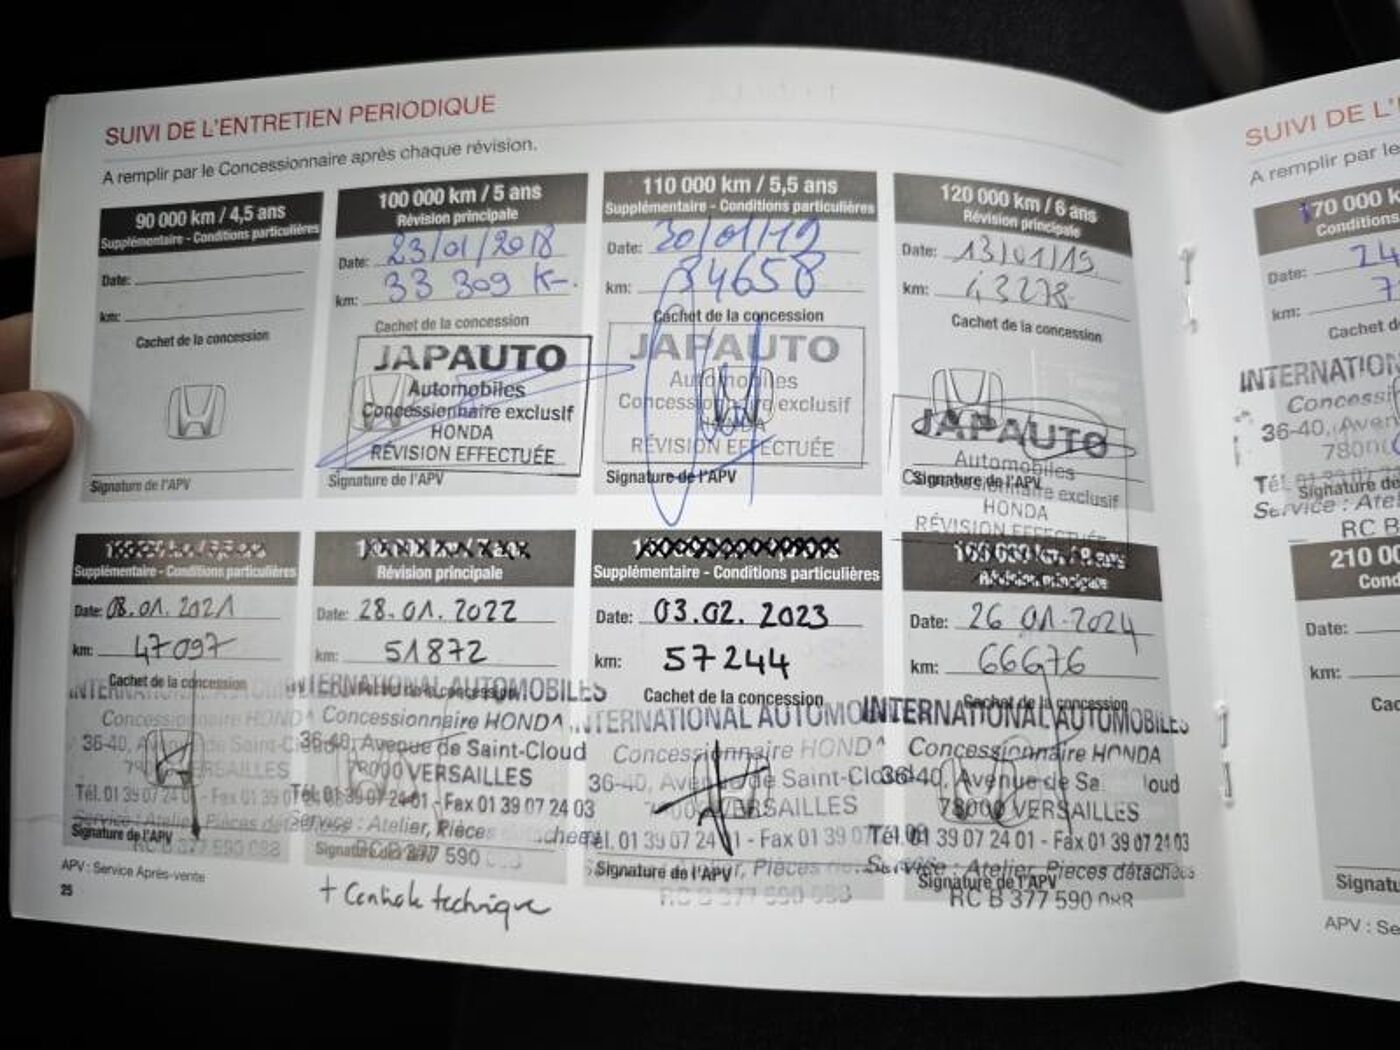 SUIVI DE L'ENTRETIEN PERIODIQUE
A remplir par le Concessionnaire après chaque révision.
90 000 km / 4,5 ans
Supplémentaire - Conditions particulières
Date:
km:
Cachet de la concession
Signature de l'APV
100 000 km / 5 ans
Révision principale
Date: 23/01/2018
km: 33 309 K-.
Cachet de la concession
JAPAUTO
Automobiles
Concessionnaire exclusif
HONDA
RÉVISION EFFECTUÉE
Signature de l'APV
110 000 km / 5,5 ans
Supplémentaire - Conditions particulières
Date: 30/01/19
km: 34658
Cachet de la concession
JAPAUTO
Automobiles
Concessionnaire exclusif
HONDA
RÉVISION EFFECTUÉE
Signature de l'APV
120 000 km / 6 ans
Révision principale
Date: 13/01/19
km: 43278
Cachet de la concession
JAPAUTO
Automobiles
Concessionnaire exclusif
Signature de l'APV
HONDA
RÉVISION EFFECTUÉE
Supplémentaire - Conditions particulières
Date: 08.01.2021
km: 47097
Cachet de la concession
INTERNATIONAL
Concessionnaire HONDA
36-40, Avenue de Saint-Cl
VERSAILLES
Tél. 01 39 07 24 01 - Fax 01 39 07
Service : Atelier, Pièces
Signature de l'APV
RC B 377 590 088
Révision principale
Date: 28.01.2022
km: 51872
INTERNATIONAL AUTOMOBILES
Concessionnaire HONDA
36-40, Avenue de Saint-Cloud
78000 VERSAILLES
01 39 07 24 01 - Fax 01 39 07 24 03
Service : Atelier, Pièces
Signature de l'APV
590
+ Contrôle technique
Supplémentaire - Conditions particulières
Date: 03.02.2023
km: 57244
Cachet de la concession
INTERNATIONAL AUTOMO
Concessionnaire HONDA
36-40, Avenue de Saint-Clo
VERSAILLES
Tél. 01 39 07 24 01 - Fax 01 39 07
Signature de l'APV
RC B 377 590 088
Date: 26 01.2024
km: 66676
Cachet de la concession
INTERNATIONAL AUTOMOBILES
Concessionnaire HONDA
36-40, Avenue de Sa loud
78000 VERSAILLES
Tél. 01 39 07 24 01 - Fax 01 39 07 24 03
Service : Atelier, Pièces détachées
Signature de l'APV
RC B 377 590 088
APV : Service Après-vente
25
SUIVI DE L'
A remplir par le
170 000 k
Conditions
Date: 24
km: 7
Cachet d
INTERNATION
Concess
36-40, Aven
7800
Tél. 01 39 07
Signature de
Service : Atel
RC B
210 00
Cond
Date:
km:
Cac
Signat
APV : Se